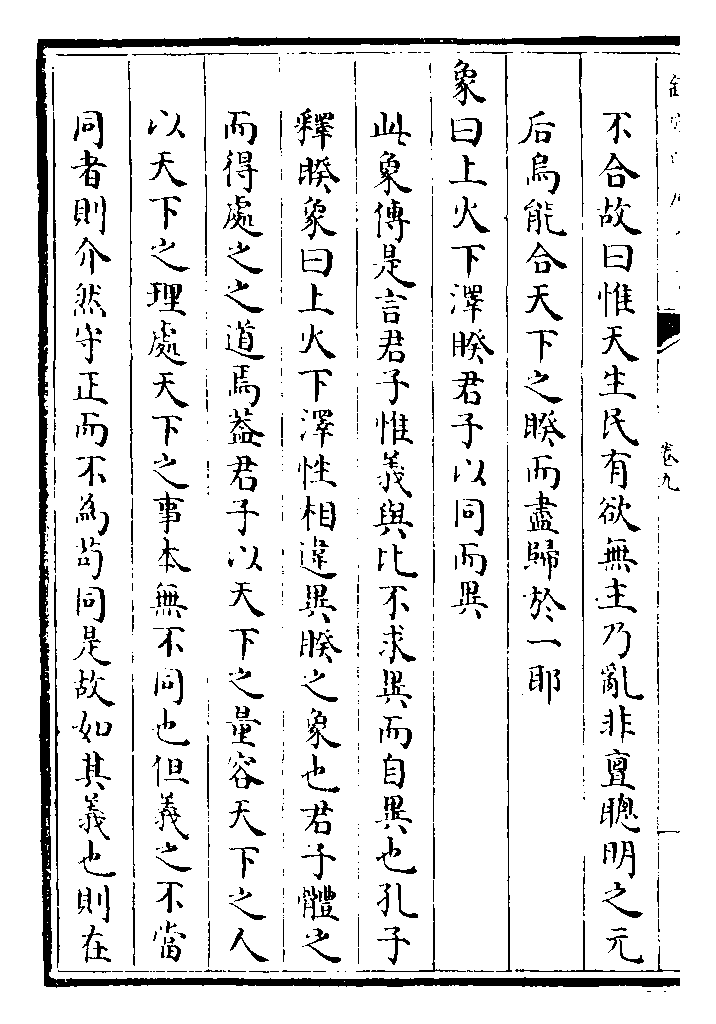 卷九
不合故曰惟天生民有欲無主乃亂非亶聰明之元
后烏能合天下之睽而盡歸於一耶
象曰上火下澤睽君子以同而異
此象傳是言君子惟義與比不求異而自異也孔子
釋睽象曰上火下澤性相違異睽之象也君子體之
而得處之之道焉葢君子以天下之量容天下之人
以天下之理處天下之事本無不同也但義之不當
同者則介然守正而不為茍同是故如其義也則在